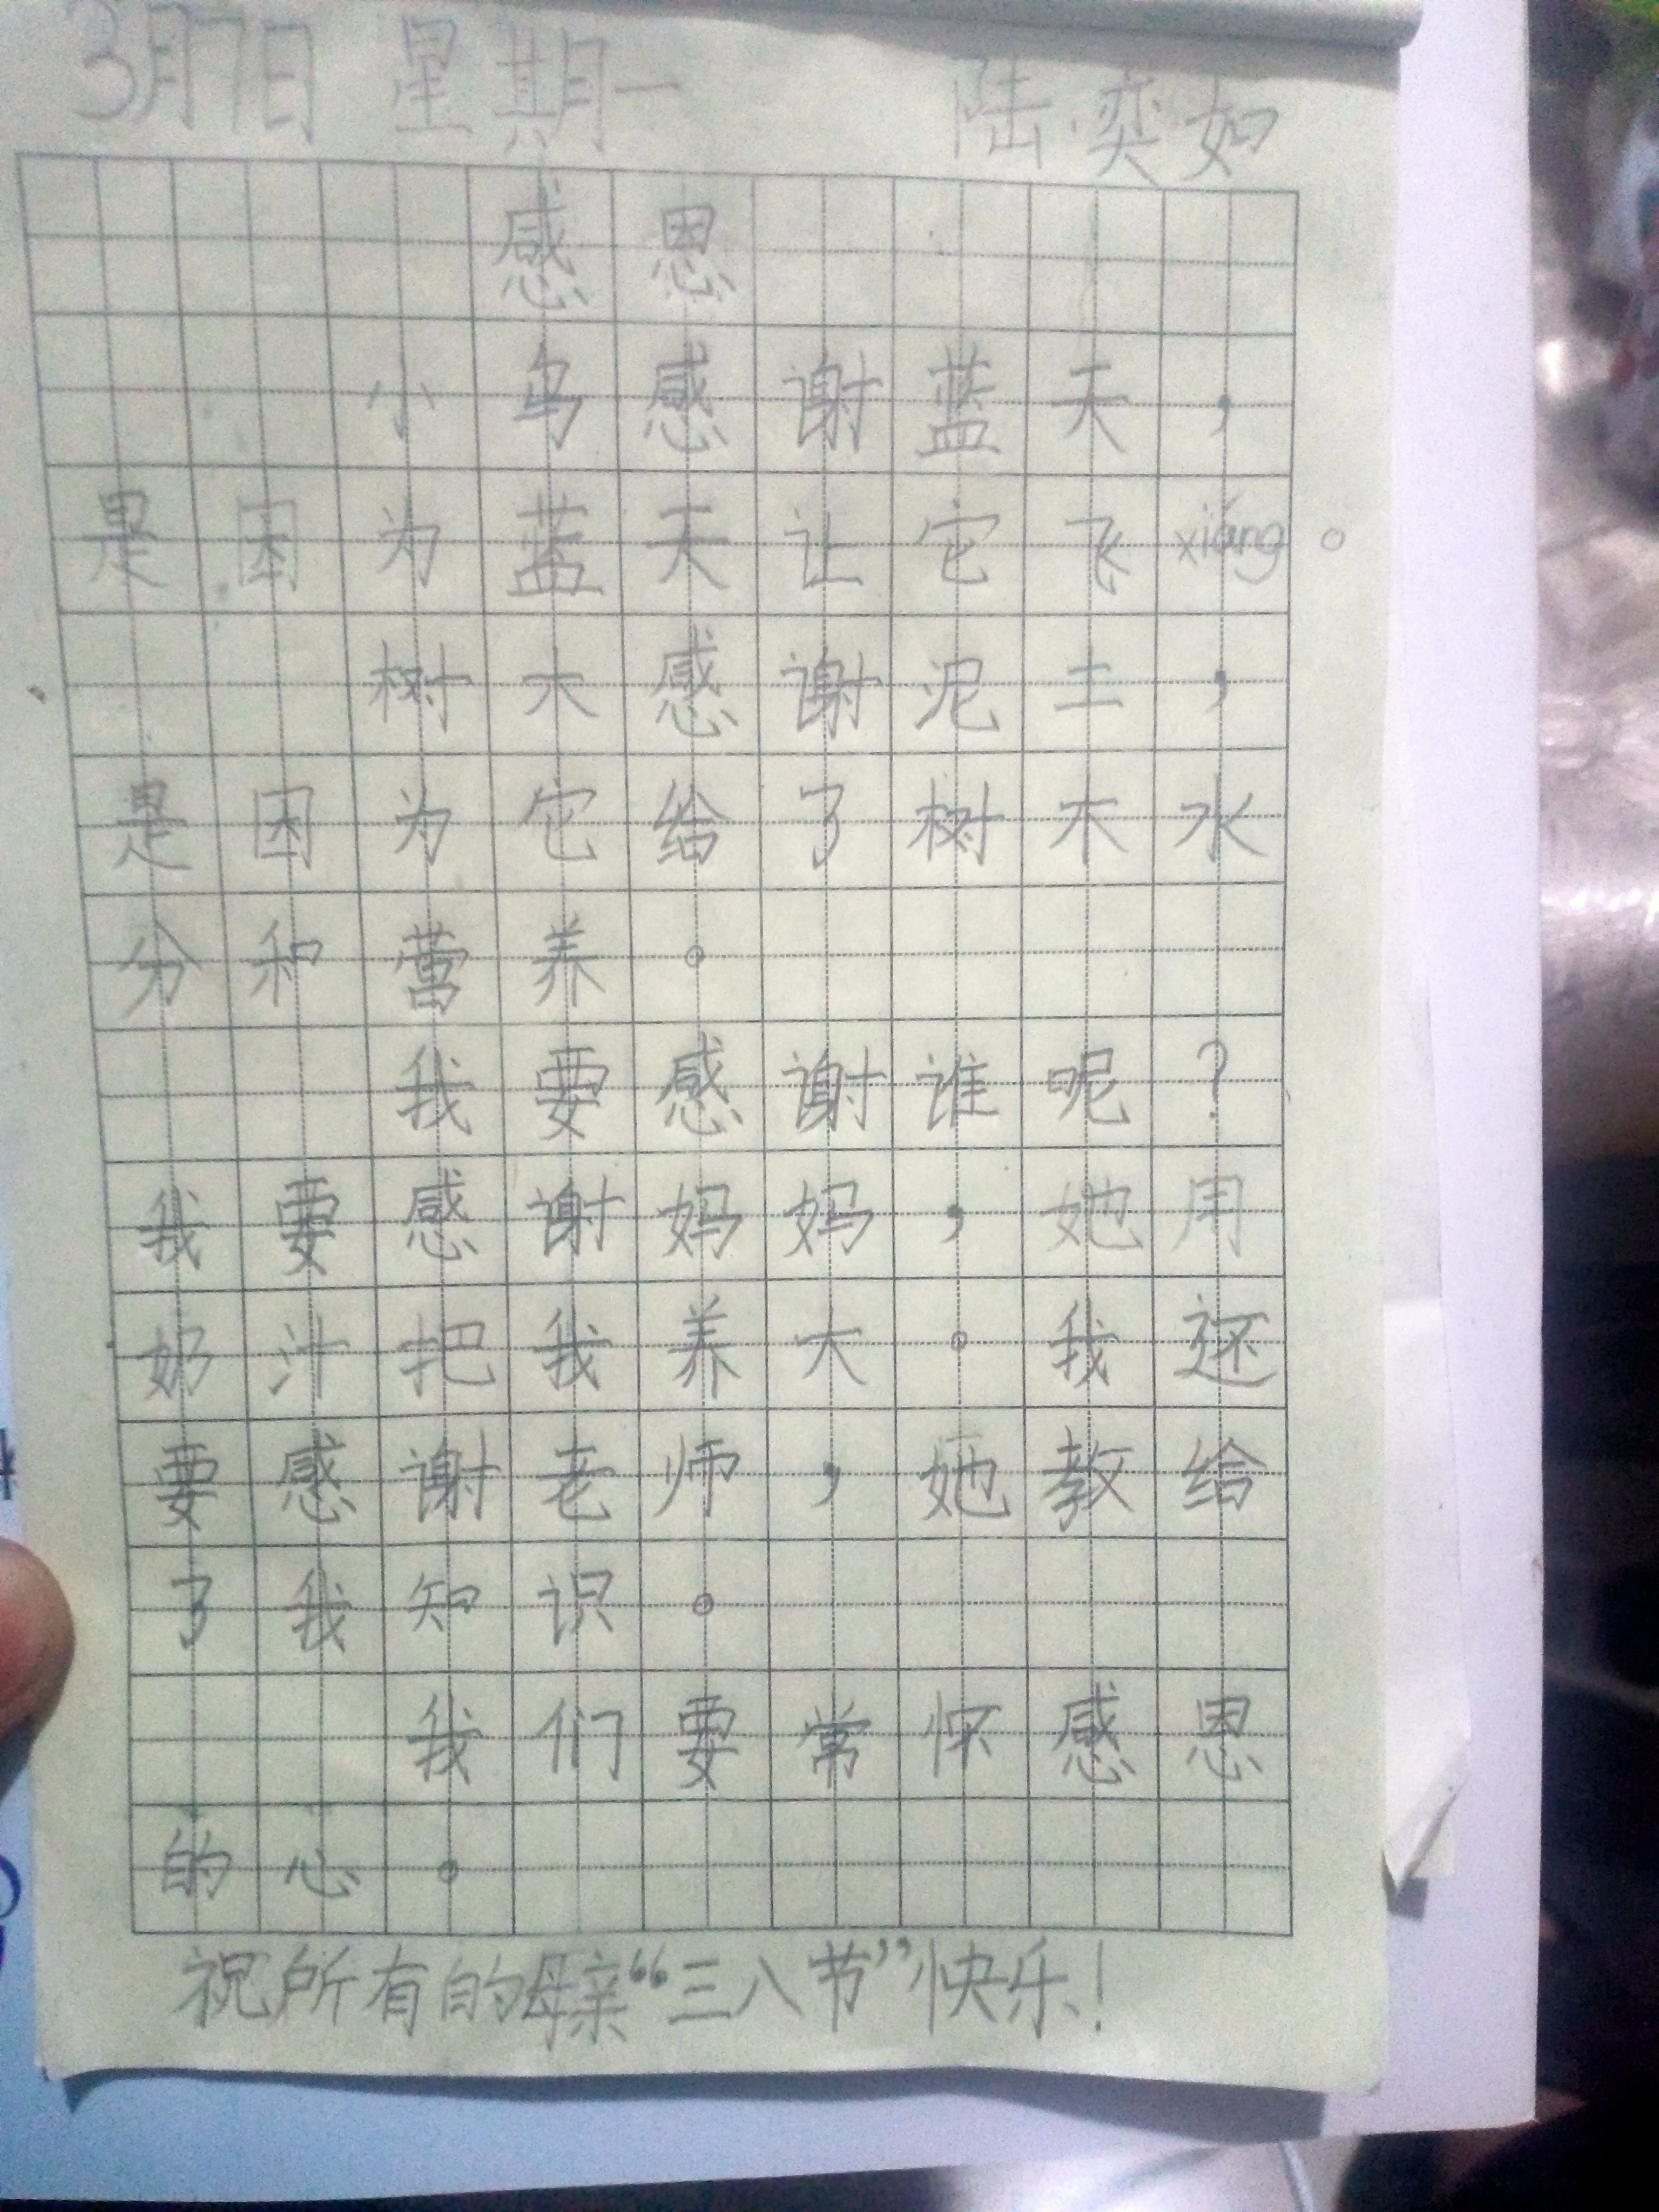 3月7日 星期一 陆奕如
感恩
小鸟感谢蓝天，
是因为蓝天让它飞xiáng。
树木感谢泥土，
是因为它给了树木水
分和营养。
我要感谢谁呢？
我要感谢妈妈，她用
奶汁把我养大。我还
要感谢老师，她教给
了我知识。
我们要常怀感恩
的心。
祝所有的母亲“三八节”快乐！